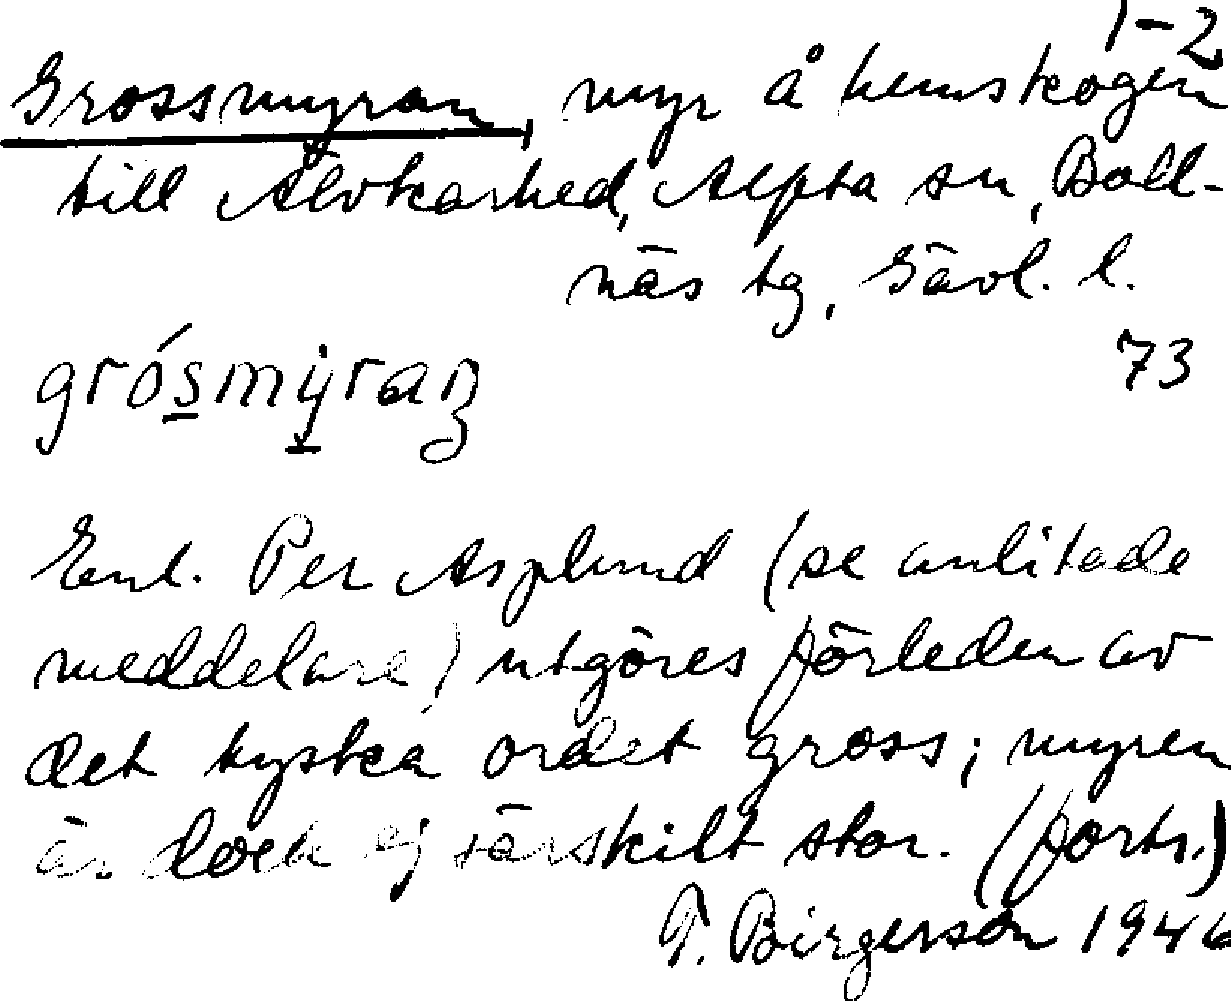 1-2
Grossmyran, myr å hemskogen
till Älvkarhed, Alfta sn, Boll-
näs tg, Gävl. l.
73
grósmyran
Enl. Per Asplund (se anlitade
meddelare) utgöres förleden av
det tyska ordet gross; myren
är dock ej särskilt stor. (forts.)
T. Birgerson 1946